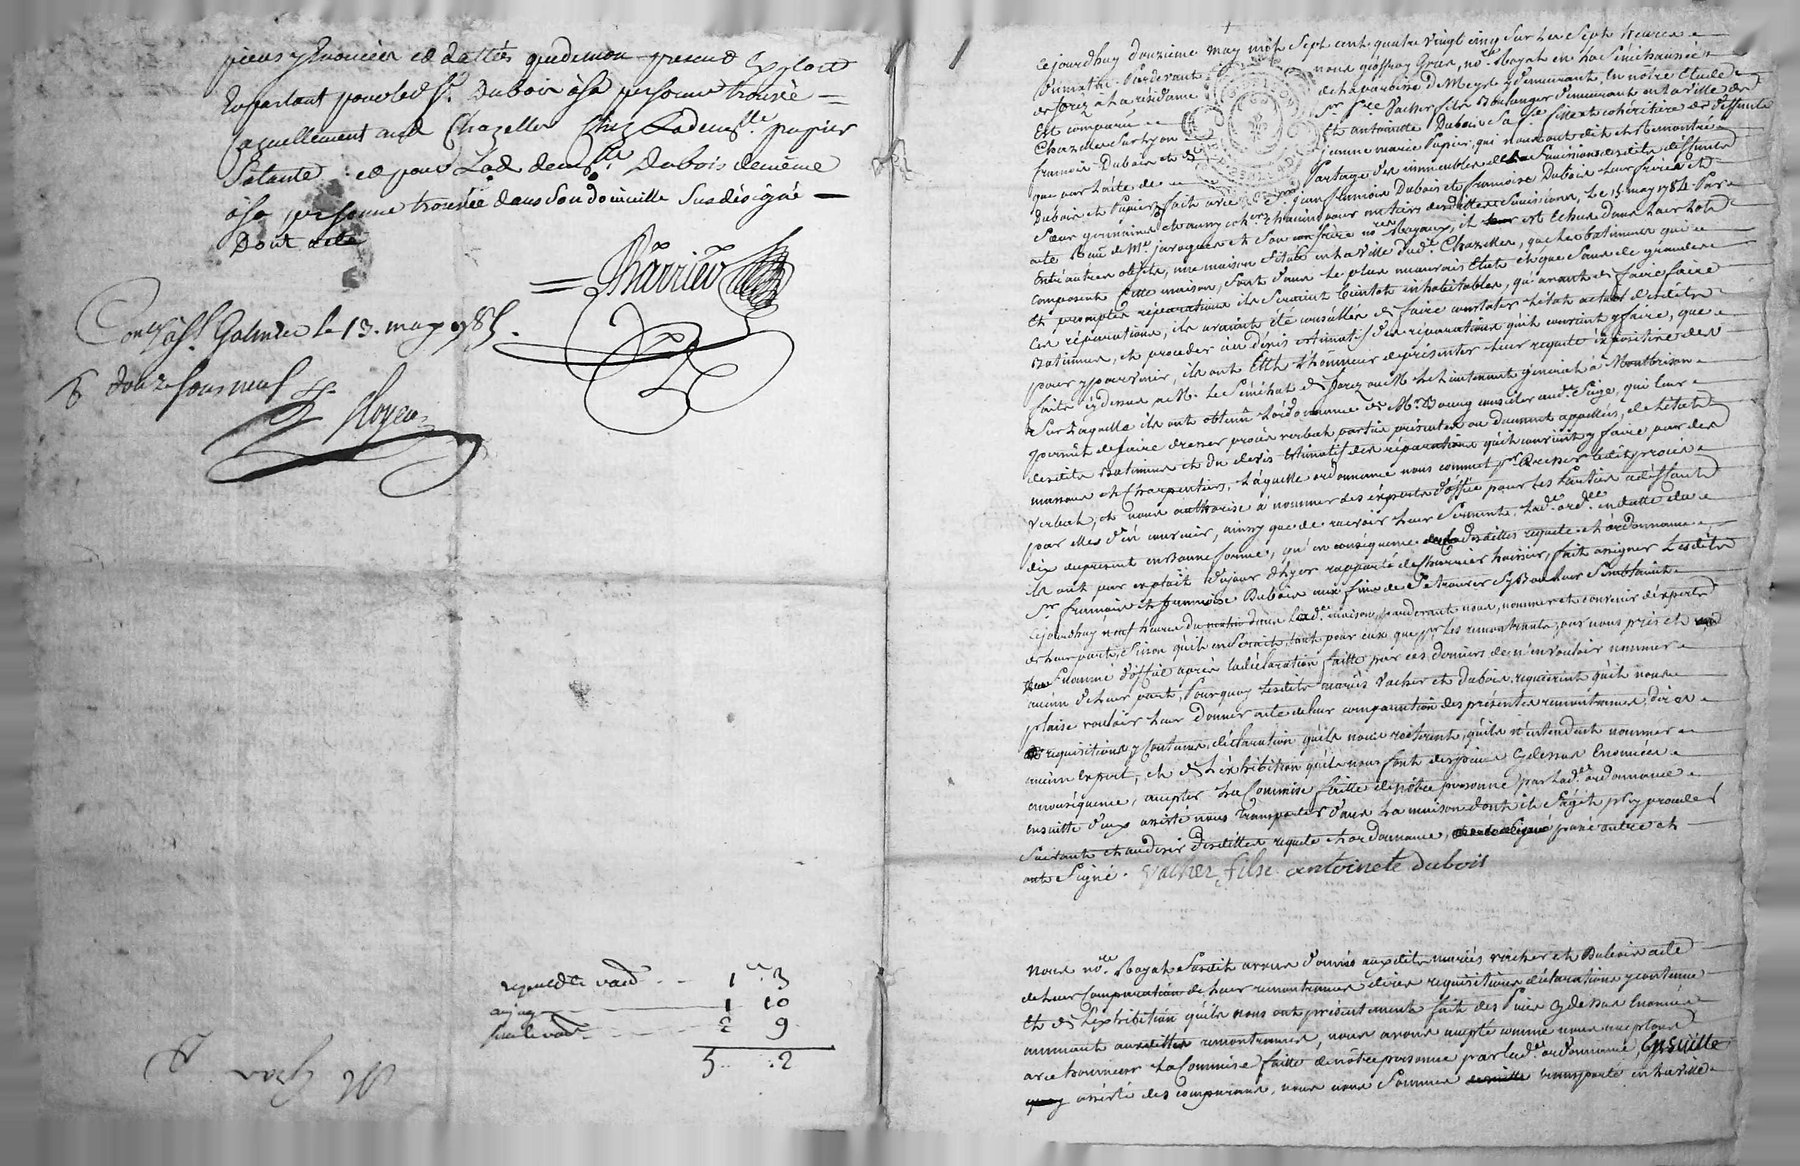 pieces y énoncées et dattés que de mon present Exploit
En parlant pour led. Sr. Dubois à sa personne trouvée
actuellement aud. Chazelles Chez Lademlle. papier
Sa tante et pour Lad. demlle Dubois de même
à sa personne trouvée dans Son domicille Susdésigné
Dont acte
Charrier
Conlé à St. Galmier le 13. may 1785.
R douze sous neuf
Royer
1 3
1 10
2 9
5 2
Me Gras
Cejourdhuy douzieme may mil Sept cent quatre vingt cinq Sur les Sept heures
du matin Pardevant nous geoffroy Gras, nore. Royal en la Sénéchaussée
de forez à la résidance de la paroisse de Meys y demeurant, En nôtre Etude
Est comparu Sr. Vacher fils Boulanger demeurant en la ville de
Chazelles Sur Lyon Et antoinette Dubois Sa fe. fille et cohéritière de deffunts
francois Dubois et de Jeanne marie Papier, qui nous ont dit et Remontré
que par Lacte de Partage des immeubles de la Succession desdits deffunts
Dubois et Papier, fait avec francoise Dubois leur frère et
Sœur germains chacun pour un tiers desdittes Successions, le 15 may 1784. Par
acte Reçu de Me. jaroquier et Son confrère nores Royaux, il est échu dans leur lots
Entre autres objets, une maison Située en la ville dud. Chazelles, que les batiments qui
composent cette maison, sont dans le plus mauvais Etat et que Sans de grandes
Et promptes réparations ils Seraient bientôt inhabitables, qu'avant de faire faire
Ces réparations, ils avaient été conseillés de faire constater l'état actuel desdits
Batiments, et proceder au devis estimatif des réparations qu'il convient y faire, que
pour y parvenir, ils ont Eté L'honneur de présenter leur requete expositive des
faits cydessus à M. Le Sénéchal de forez ou M. le Lieutenant général à Montbrison
Sur Laquelle ils ont obtenu L'ordonnance de Mr. Bourg conseiller aud. Siege, qui leur
permet de faire dresser procès verbal partie présentes ou dument appellées, de l'état
desdits Batiments et du devis Estimatif des réparations qu'il convient y faire par des
massons et Charpentiers, Laquelle ordonnance nous commet pr. Dresser ledit procès
verbal, et nous authorise à nommer des experts d'office pour les Parties a deffaut
par elles d'en convenir, ainsy que de recevoir leur Serment. Lad. ordce. en datte du
dix du présent en bonne forme, qu'en conséquence desdittes requete et ordonnance
ils ont par exploit du jour d'hyer rapporté de Charrier huissier, fait assigner lesdits
Sr. francois et francoise Dubois aux fins de Se trouver Sy Bon leur Semblait
Cejourdhuy neuf heures du matin dans Lad. maison, pardevant nous, nommer et convenir d'experts
de leur part, Sinon qu'il en Serait, tant pour eux que pr. les remontrants, par nous pris et
nommé d'office après la déclaration faitte par ces derniers de n'en vouloir nommer
aucun de leur part, Pourquoy lesdits mariés Vacher et Dubois requierent qu'il nous
plaise vouloir leur donner acte de leur comparution des présentes remontrances, dires
requisitions y Contenus, déclaration qu'ils nous réiterent, qu'ils n'entendent nommer
aucun Expert, et de l'exhibition qu'ils nous font des pièces Cydessus Enoncées
en conséquence, accepter La Commise faitte de nôtre personne par Lad. ordonnance
ensuitte d'eux assisté nous transporter dans La maison dont il S'agit pr. y proceder
Suivant et au desir desdittes requete et ordonnance, pariè autre et
ont Signé. Vacher fils antoinete dubois
Nous nore. Royal Susdit avons donnés auxdits mariés vacher et Dubois acte
de leur Comparution de leur remontrances dires requisitions déclarations y contenus
Et de L'exhibition qu'ils nous ont présentement fait des Pièces Cydessus Enoncées
remontrances, nous avons accepté comme nous acceptons
avec honneur La Commise faitte de nôtre personne par Lad. ordonnance, Ensuitte
assisté des comparans, nous nous Sommes transporté en La ville